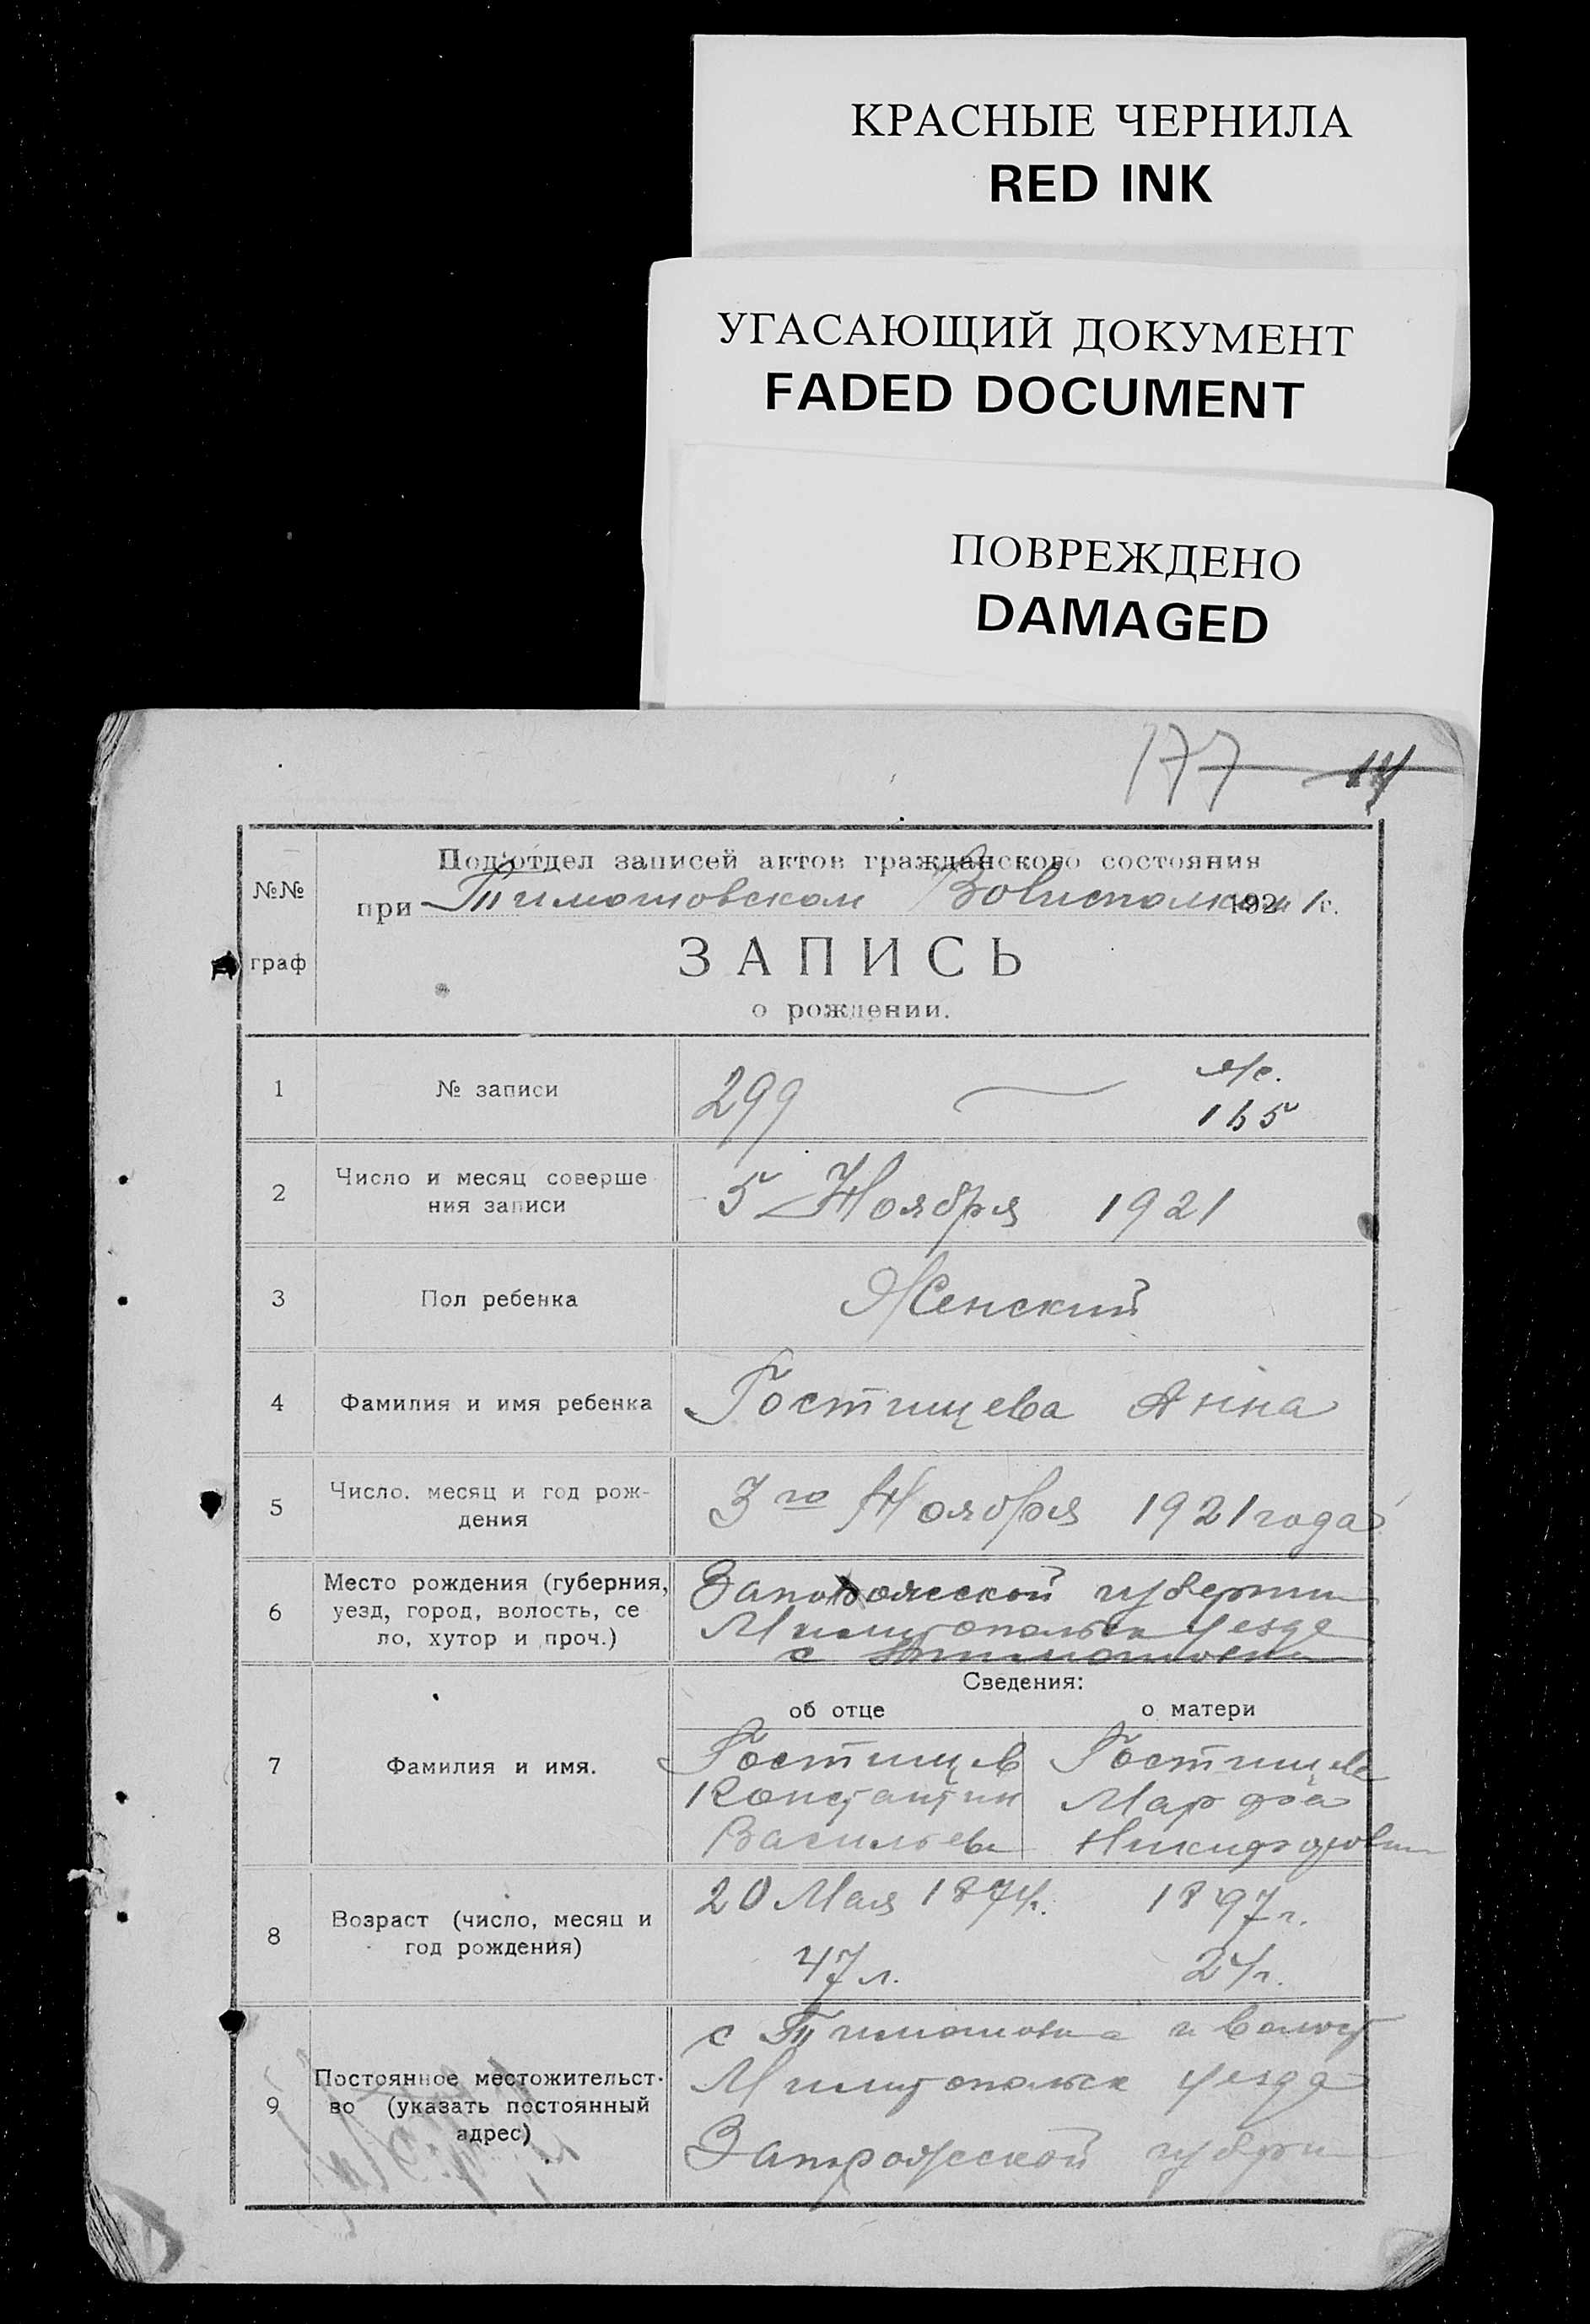 КРАСНЫЕ ЧЕРНИЛА
RED INK
УГАСАЮЩИЙ ДОКУМЕНТ
FADED DOCUMENT
ПОВРЕЖДЕНО
DAMAGED
177
№№ граф
Под'отдел записей актов гражданского состояния
при Тимошовском Волисполком 1921 г.
ЗАПИСЬ
о рождении.
1 № записи 299
м/с.
165
2 Число и месяц соверше
ния записи 5 Ноября 1921
3 Пол ребенка Женский
4 Фамилия и имя ребенка Гостищева Анна
5 Число. месяц и год рож-
дения 3го Ноября 1921 года
6 Место рождения (губерния,
уезд, город, волость, се
ло, хутор и проч.)
Запорожской губернии
Милитопольск уезде
с Тимошовки
Сведения:
об отце о матери
7 Фамилия и имя.
Гостищев Гостищева
Константин Марфа
Васильев Никифоровна
8 Возраст (число, месяц и
год рождения)
20 Мая 1874г. 1897г.
47 л. 24 г.
9 Постоянное местожительст-
во (указать постоянный
адрес)
с Тимошовка и волост
Милитопольск уезда
Запорожской губерн